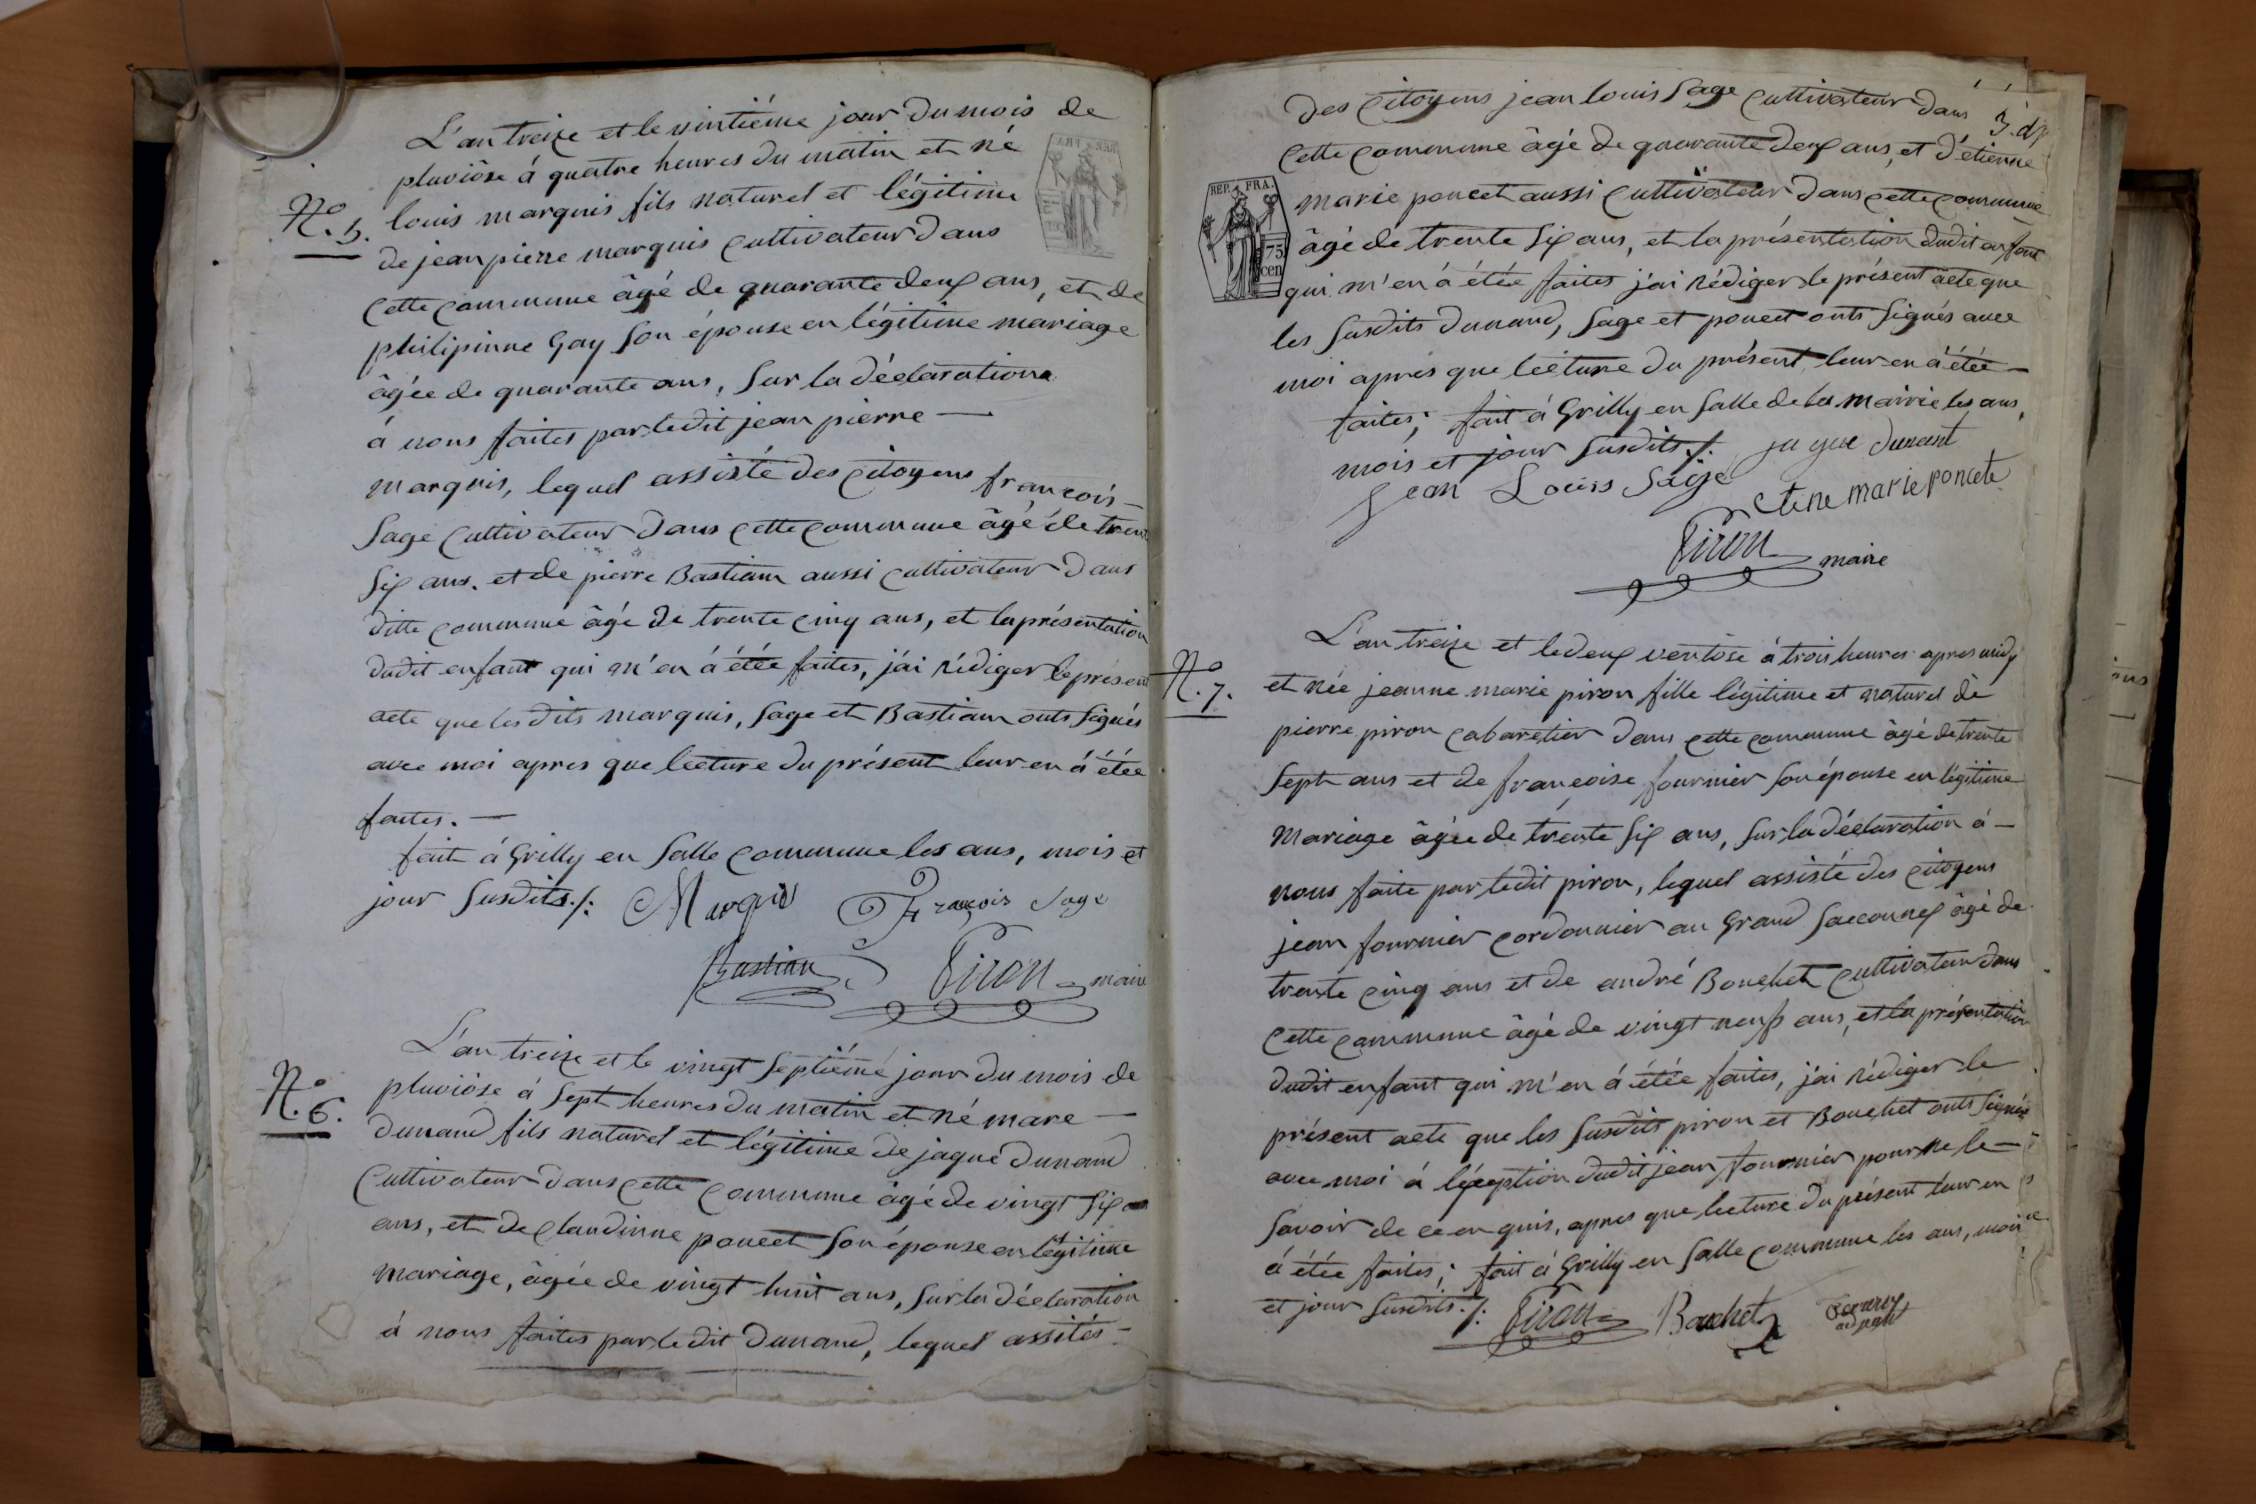 L'an treize et le vintiéme jour du mois de
pluviôse á quatre heures du matin et né
N.º 5. louis marquis fils naturel et légitime
de jean pierre marquis cultivateur dans
cette commune âgé de quarante deux ans, et de
philipinne Gay son épouse en légitime mariage
âgée de quarante ans, sur la déclaration
á nous faites par ledit jean pierre —
marquis, lequel assisté des citoyens françois —
Sage cultivateur dans cette commune âgé de trente
six ans. et de pierre Bastian aussi cultivateur dans
ditte commune âgé de trente cinq ans, et la présentation
dudit enfant qui m'en á étée faites, j'ái rédiger le présent
acte que lesdits marquis, Sage et Bastian onts signés
avec moi apres que lecture du présent leur en á étée
faites. —
fait á Grilly en salle commune les ans, mois et
jour susdits ./. Marquis François Sage
Bastian Piron maire
L'an treize et le vingt septiéme jour du mois de
N.º 6. pluviôse á sept heures du matin et né marc —
dunand fils naturel et légitime de jaque dunand
cultivateur dans cette commune âgé de vingt six
ans, et de claudinne poncet son épouse en légitime
mariage, âgée de vingt huit ans, sur la déclaration
á nous faites par ledit dunand, lequel assités —
des citoyens jean louis Sage cultivateur dans
cette commune âgé de quarante deux ans, et d'étienne
REP. FRA.
marie poncet aussi cultivateur dans cette commune
75 cen
âgé de trente six ans, et la présentation dudit enfant
qui m'en á étée faites j'ái rédiger le présent acte que
les susdits dunand, Sage et poncet onts signés avec
moi apres que lecture du présent leur en á étée —
faites; fait á Grilly en salle de la mairie les ans,
mois et jour susdits ./. ja que dunant
Jean Louis Sage
etiene marie poncete
Piron maire
L'an treize et le deux ventôse á trois heures apres midy
N.º 7. et née jeanne marie piron fille légitime et naturel de
pierre piron cabaretier dans cette commune âgé de trente
sept ans et de françoise fournier son épouse en légitime
mariage âgée de trente six ans, sur la déclaration á —
nous faite par ledit piron, lequel assisté des citoyens
jean fournier cordonnier au Grand Sacconnex âgé de
trente cinq ans et de andré Bouchet cultivateur dans
cette commune âgé de vingt neuf ans, et la présentation
dudit enfant qui m'en á étée faites, j'ai rédiger le
présent acte que les susdits piron et Bouchet onts signés
avec moi á léxception dudit jean fournier pour ne le —
savoir de ce en quis, apres que lecture du présent leur en
á étée faites; fait á Grilly en salle commune les ans, mois
et jour susdits ./. Piron Bouchet